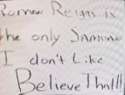 Roman Reigns is
the only Samoan
I don't Like
Believe That!!!